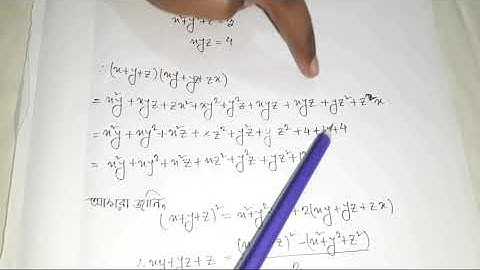 xyz = 4
∴ (x+y+z)(xy+yz+zx)
= x²y + xyz + zx² + xy² + y²z + xyz + xyz + yz² + z²x
= x²y + xy² + x²z + xz² + y²z + yz² + 4 + 4 + 4
= x²y + xy² + x²z + xz² + y²z + yz² +
আমরা জানি,
(x+y+z)² = x² + y² + 2(xy+yz+zx)
∴ xy+yz+z = )² − (x²+y²+z²)